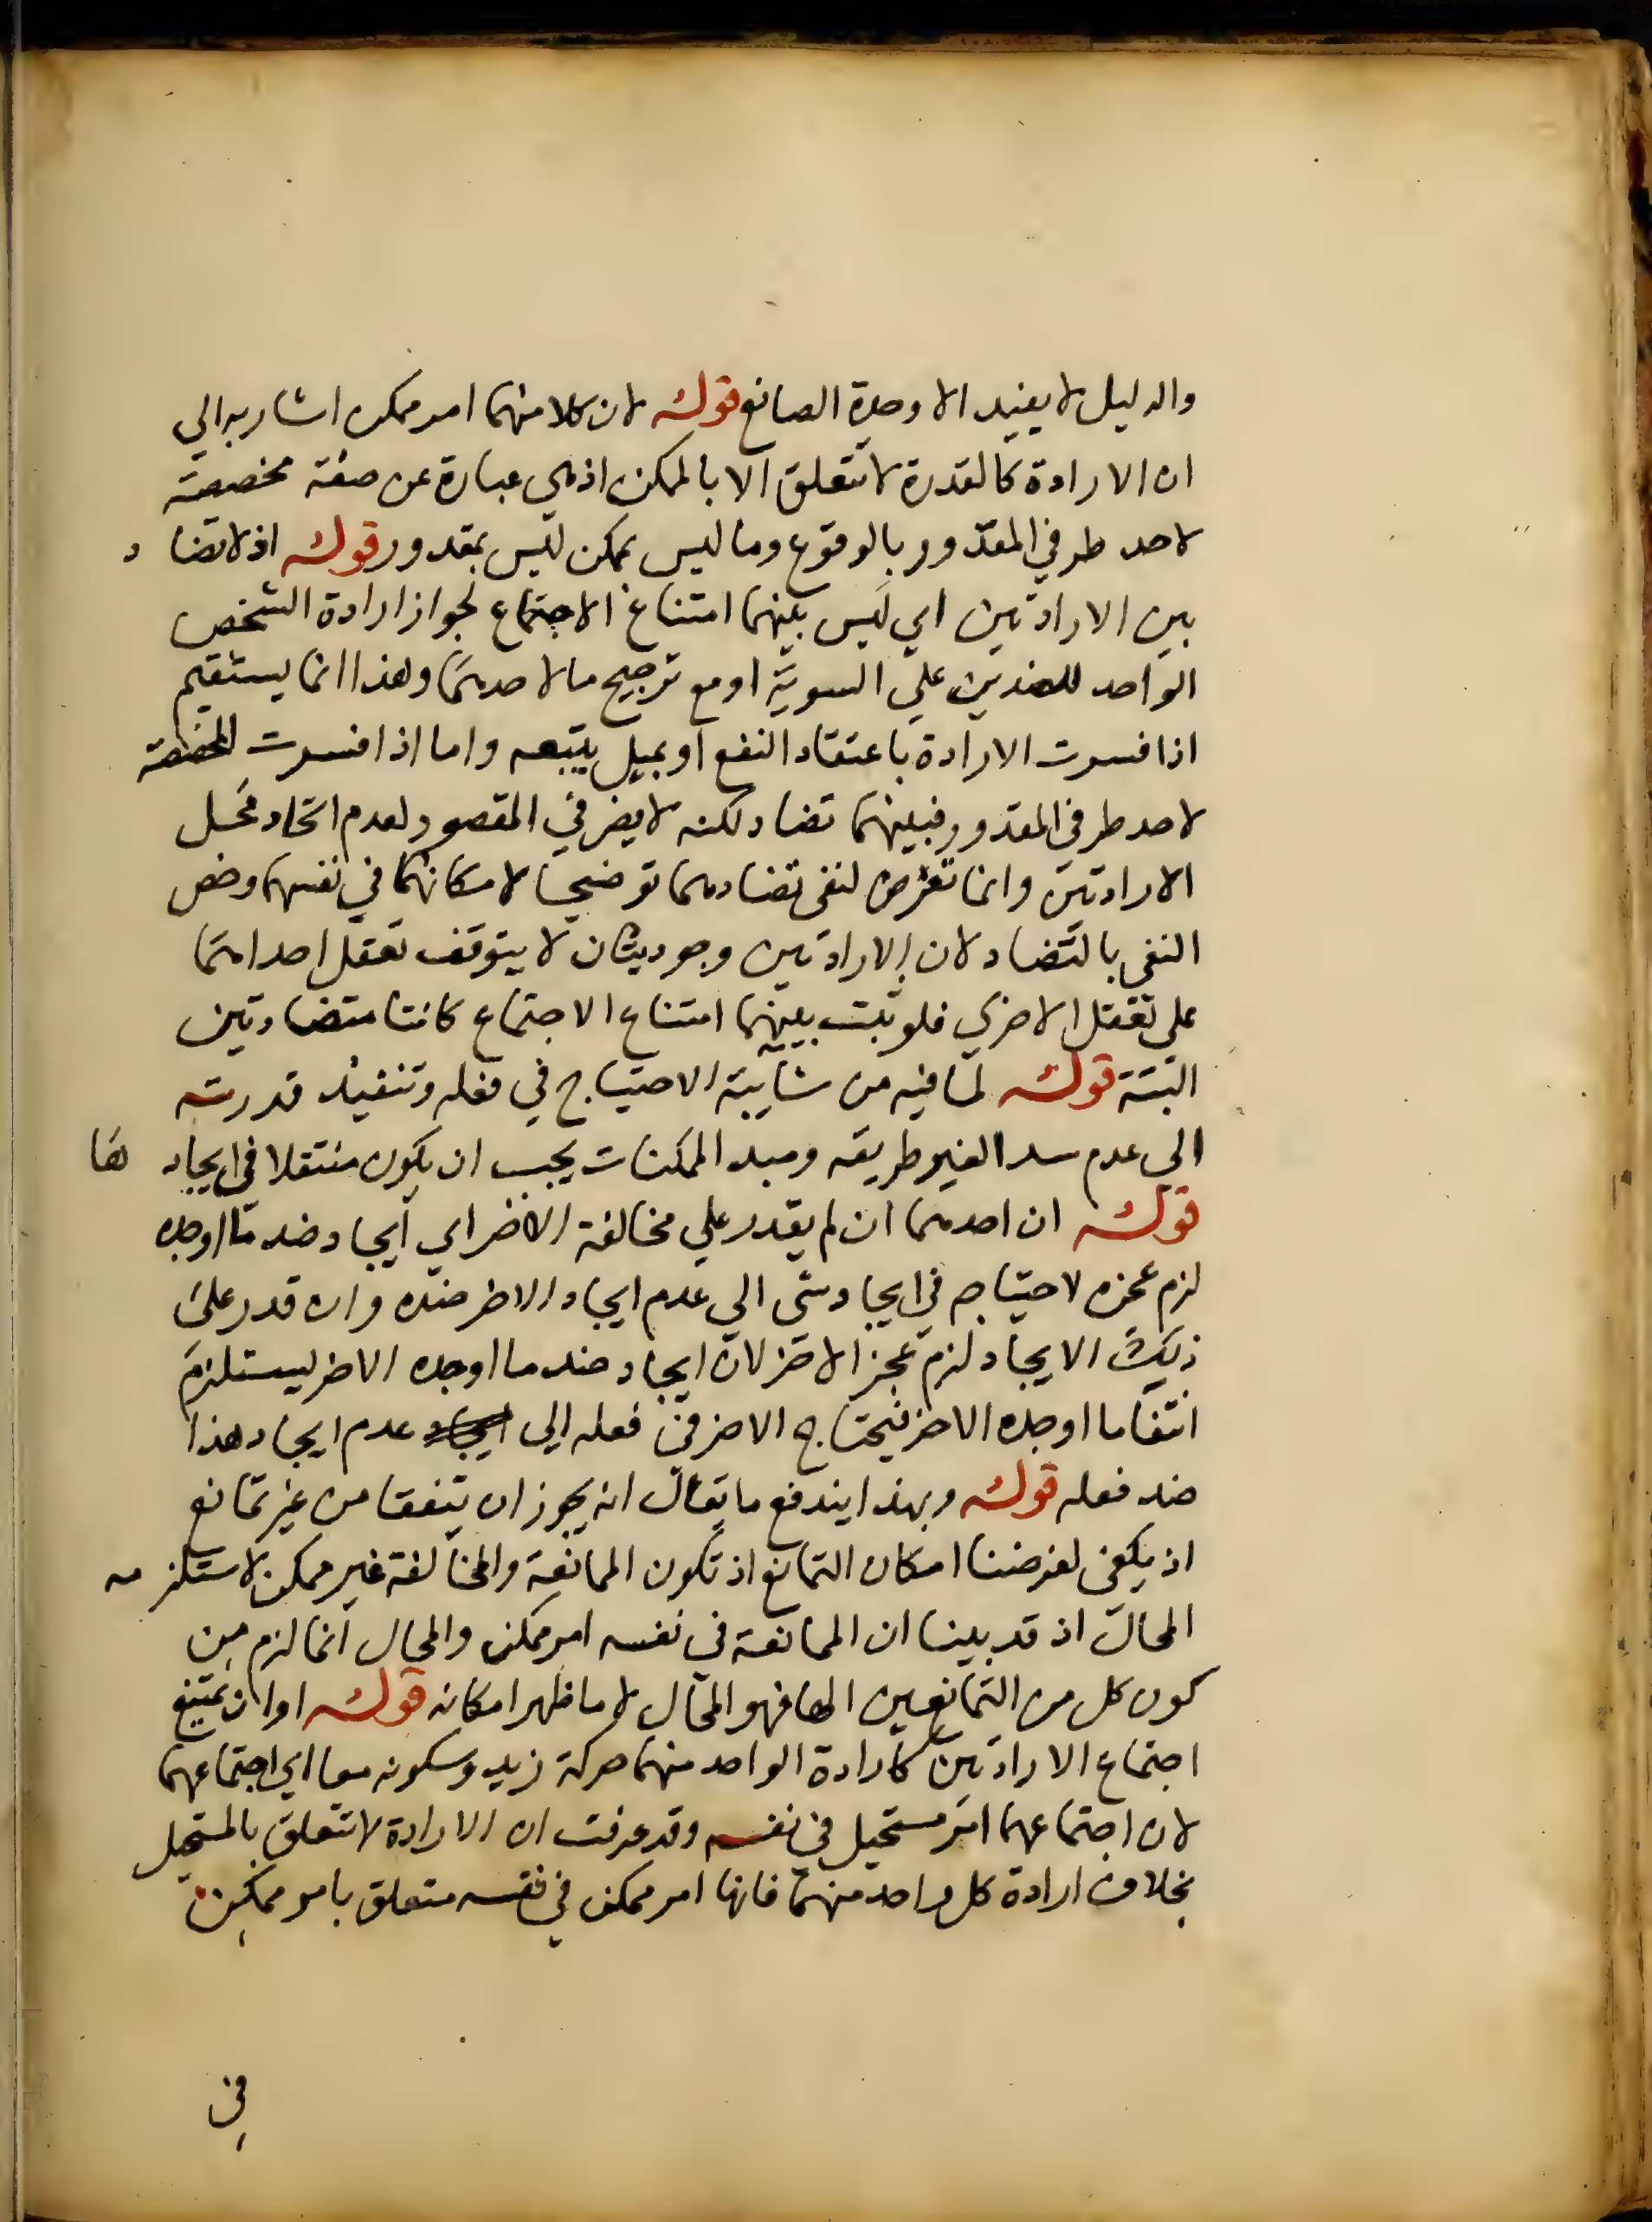 والدليل لا يفيد الا وحدة الصانع قوله لان كلا منهما امر ممكن اشار به الي
ان الارادة كالقدرة لا تتعلق الا بالممكن اذ هي عبارة عن صفة مخصصة
لاحد طرفي المقدور بالوقوع وما ليس بممكن ليس بمقدور قوله اذ لا تضاد
بين الارادتين اي ليس بينهما امتناع الاجتماع لجواز ارادة الشخص
الواحد للضدين علي السوية او مع ترجيح ما لاحدهما وهذا انما يستقيم
اذا فسرت الارادة باعتقاد النفع او بميل يتبعه واما اذا فسرت المخصصة
لاحد طرفي المقدور فبينهما تضاد لكنه لا يضر في المقصود لعدم اتحاد محل
الارادتين وانما تعرض لنفي تضادهما توضيحا لامكانهما في نفسهما وخص
النفي بالتضاد لان الارادتين وجوديتان لا يتوقف تعقل احداهما
علي تعقل الاخري فلو ثبت بينهما امتناع الاجتماع كانتا متضادتين
البتة قوله لما فيه من شايبة الاحتياج في فعله وتنفيذ قدرته
الي عدم سد الغير طريقه ومبدا الممكنات يجب ان يكون مستقلا في ايجادها
قوله ان احدهما ان لم يقدر علي مخالفة الاخر اي ايجاد ضد ما اوجده
لزم عجزه لاحتياجه في ايجاد شى الي عدم ايجاد الاخر ضده وان قدر علي
ذلك الايجاد لزم عجز الاخر لان ايجاد ضد ما اوجده الاخر يستلزم
انتفا ما اوجده الاخر فيحتاج الاخر في فعله الي عدم ايجاد هذا
ضد فعله قوله وبهذا يندفع ما يقال انه يجوز ان يتفقا من غير تمانع
اذ يكفي لغرضنا امكان التمانع اذ تكون الممانعة والمخالفة غير ممكن لاستلزامه
المحال اذ قد بينا ان الممانعة في نفسه امر ممكن والمحال انما لزم من
كون كل من المتمانعين الها فهو المحال لا ما ظهر امكانه قوله او ان يمتنع
اجتماع الارادتين كارادة الواحد منهما حركة زيد وسكونه معا اي اجتماعهما
لان اجتماعهما امر مستحيل في نفسه وقد عرفت ان الارادة لا تتعلق بالمستحيل
بخلاف ارادة كل واحد منهما فانها امر ممكن في نفسه متعلق بامر ممكن
في